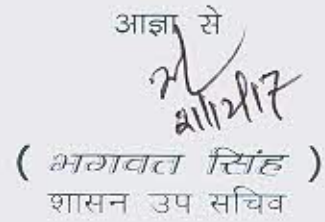 आज्ञा से
( भगवत सिंह )
शासन उप सचिव